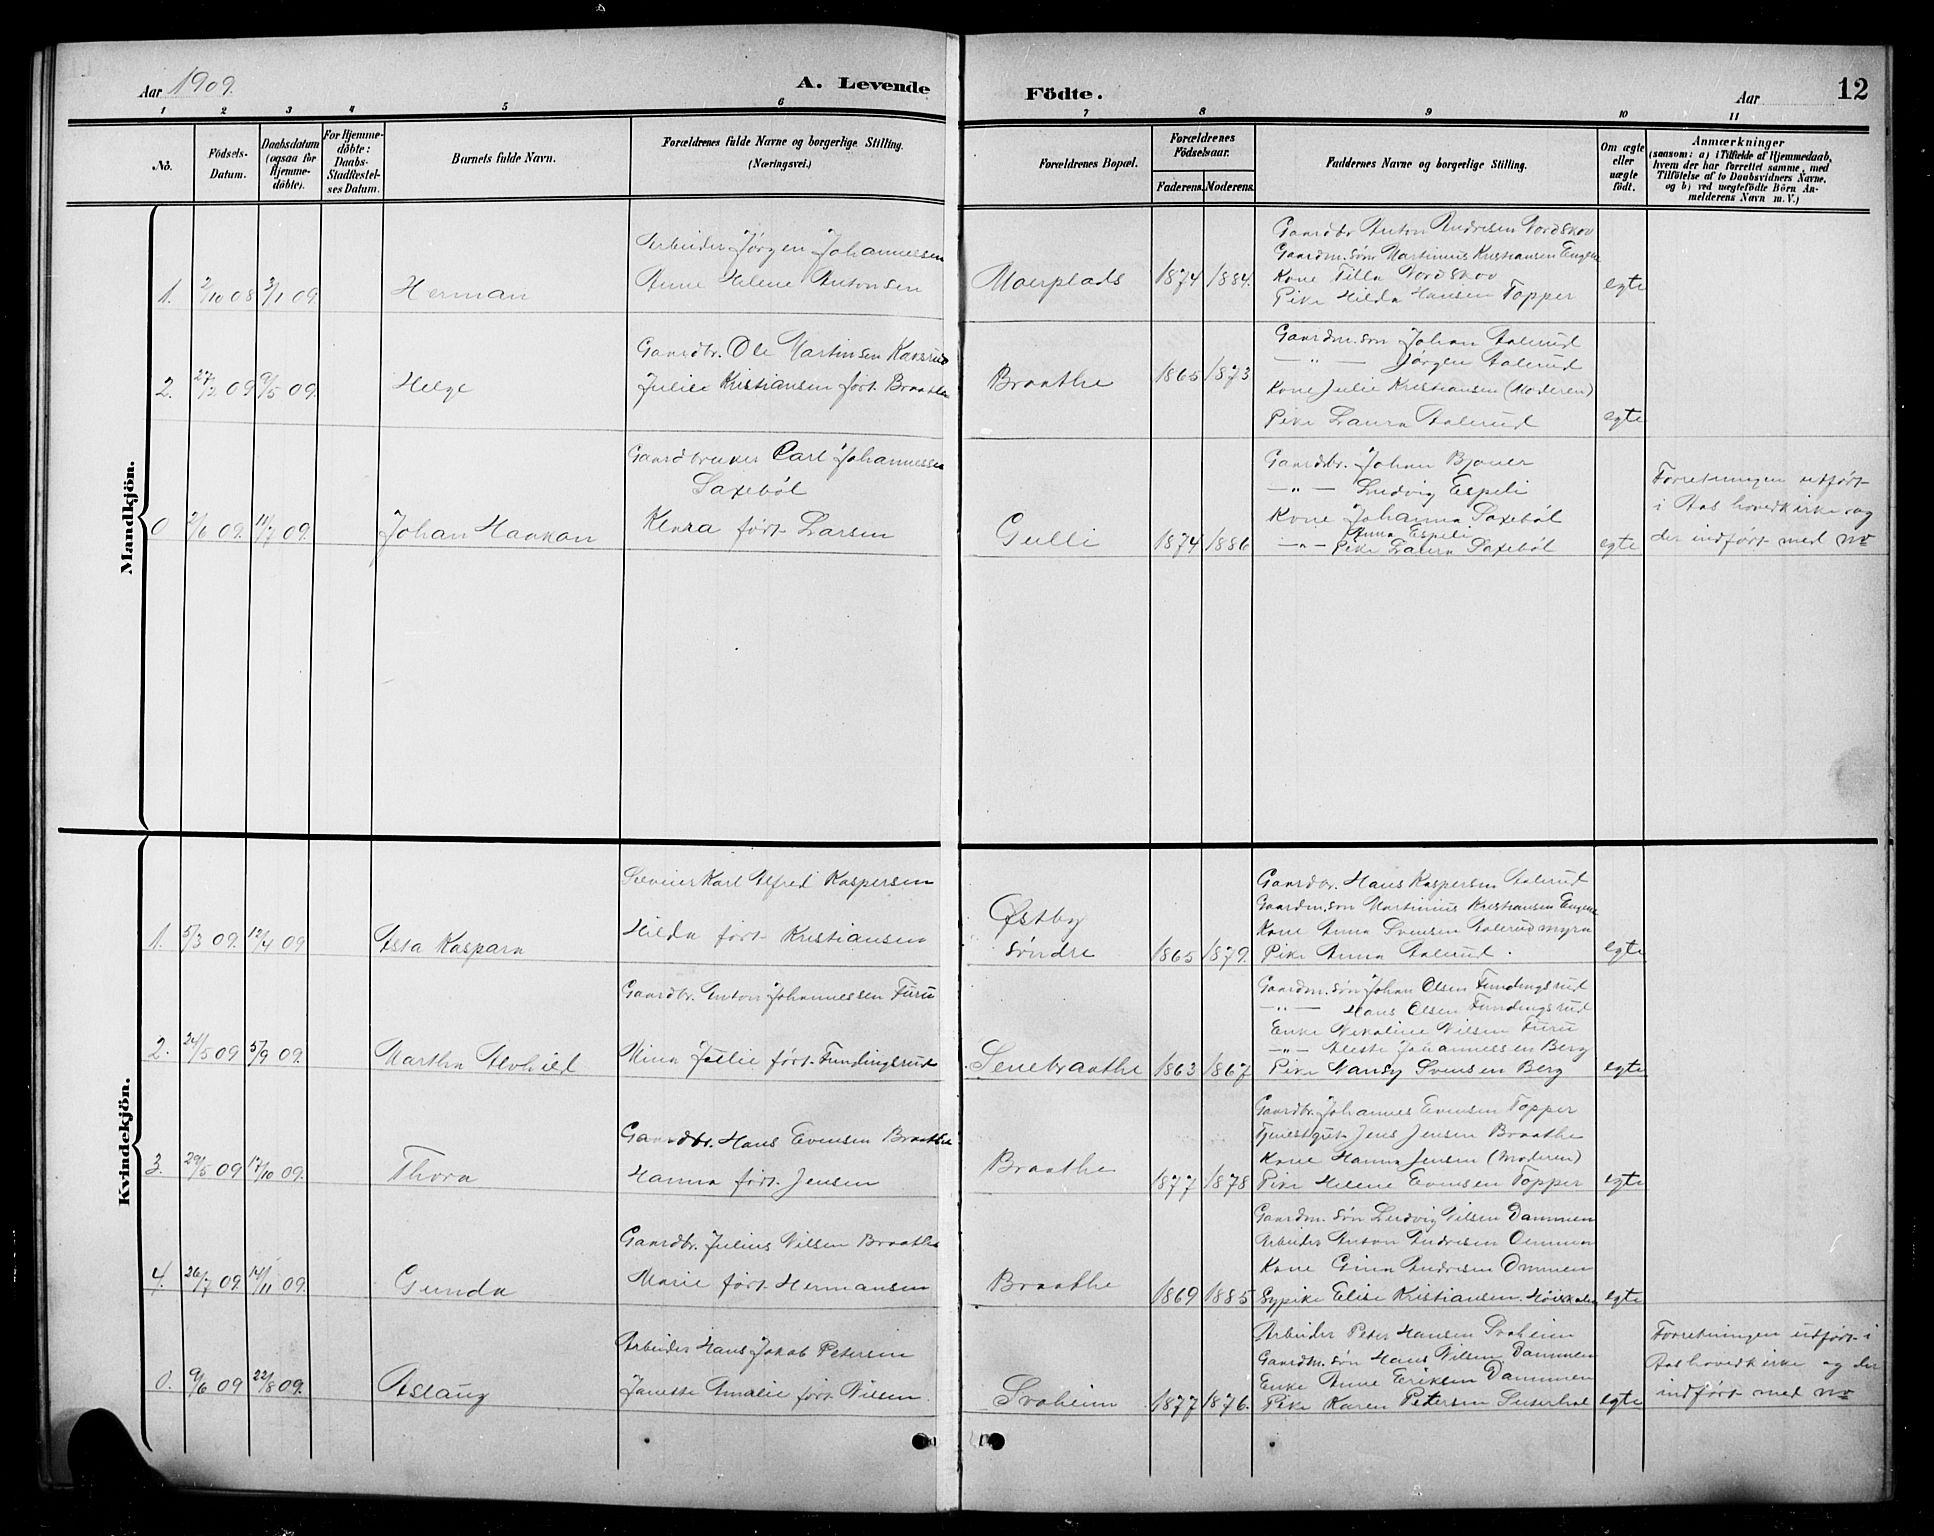 Aar 1909. A. Levende Födte. Aar 12
1 2 3 4 5 6 7 8 9 10 11
No. Födsels-Datum. Daabsdatum (ogsaa for Hjemme-döbte). For Hjemme-döbte: Daabs-Stadfestel-ses Datum. Barnets fulde Navn. Forældrenes fulde Navne og borgerlige Stilling. (Næringsvei.) Forældrenes Bopæl. Forældrenes Födselsaar. Faderens. Moderens. Faddernes Navne og borgerlige Stilling. Om ægte eller uægte födt. Anmærkninger (saasom: a) i Tilfælde af Hjemmedaab, hvem der har forrettet samme, med Tilföielse af to Daabsvidners Navne, og b) ved uægtefödte Börn An-melderens Navn m. V.)
Mandkjön.
Arbeider Jørgen Johannessen
Gaardbr. Anton Andresen Nordskov
Gaardm. søn Martinius Kristiansen Engene
Kone Tilla Nordskov
1. 2/10 08 3/1 09. Herman Anne Helene Antonsen Moerplads 1874 1884. Pike Hilda Hansen Topper egte
Gaardbr. Ole Martinsen Kaasrud
Gaardm. søn Johan Aalerud
— " — Jørgen Aalerud
2. 27/2 09 9/5 09. Helge Julie Kristiansen født Braathe Braathe 1865 1873 Kone Julie Kristiansen (Moderen)
Pike Laura Aalerud egte
Gaardbruker Carl Johannessen
Saxebøl
Gaardbr. Johan Bjøuer
— " — Ludvig Espeli
Kone Johanna Saxebøl
— " — Anna Espeli
0 2/6 09. 11/7 09. Johan Haakon Kenra født Larsen Gulli 1874 1886 Pike Laura Saxebøl egte
Forretningen utført
i Aas hovedkirke og
der indført med no
Kvindekjön.
Karl Alfred Kaspersen
Gaardbr. Hans Kaspersen Aalerud
Gaardm. søn Martinius Kristiansen Engene
Kone Anna Svensen Aalerudmyra
1. 5/3 09. 12/4 09 Asta Kaspara Hilda født Kristiansen Østby
søndre 1865 1879. Pike Anna Aalerud. egte
Gaardbr. Anton Johannessen Furu
Gaardm. søn Johan Olsen Fundingsrud
— " — Hans Olsen Fundingsrud
Enke Nikoline Nilsen Furu
— " — Aleste Johannessen Berg
2. 24/5 09 5/9 09. Martha Alvhild Mina Julie født Fundingsrud Senebraathe 1863 1867 Pike Nansy Svensen Berg egte
Gaardbr. Hans Evensen Braathe
Gaardbr. Johannes Evensen Topper
Tjenestgut Jens Jensen Braathe
Kone Hanna Jensen (Moderen)
3. 29/5 09 17/10 09. Thora Hanna født Jensen Braathe 1877 1878 Pike Helene Evensen Topper egte
Gaardbr. Julius Nilsen Braathe
Gaardm. søn Ludvig Nilsen Dammen
Arbeider Anton Andresen Ommen
Kone Gina Andresen Ommen
4. 26/7 09 14/11 09. Gunda Marie født Hermansen Braathe 1869 1885 Sypike Elise Kristiansen. egte
Arbeider Hans Jakob Petersen
Arbeider Peter Hansen Svaheim
Gaardm. søn Hans Nilsen Dammen
Enke Anne Eriksen Dammen
0. 9/6 09 22/8 09. Aslaug Janette Amalie født Nilsen. Svaheim 1877 1876. Pike Karen Petersen egte
Forretningen utført i
Aas hovedkirke og der
indført med no